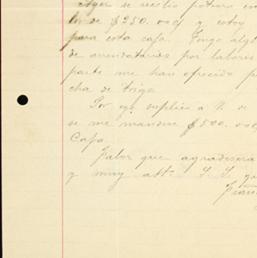 Ayer se recibio
de $250.00 y estoy
para esta casa. Tengo alg
de arrendatarios por labores
parte me han ofrecido p
cha de trigo.
Por eso suplico a V. se
se me manden $500.00
Casa.
Favor que agradecera
y muy att. S. S. q
Fran